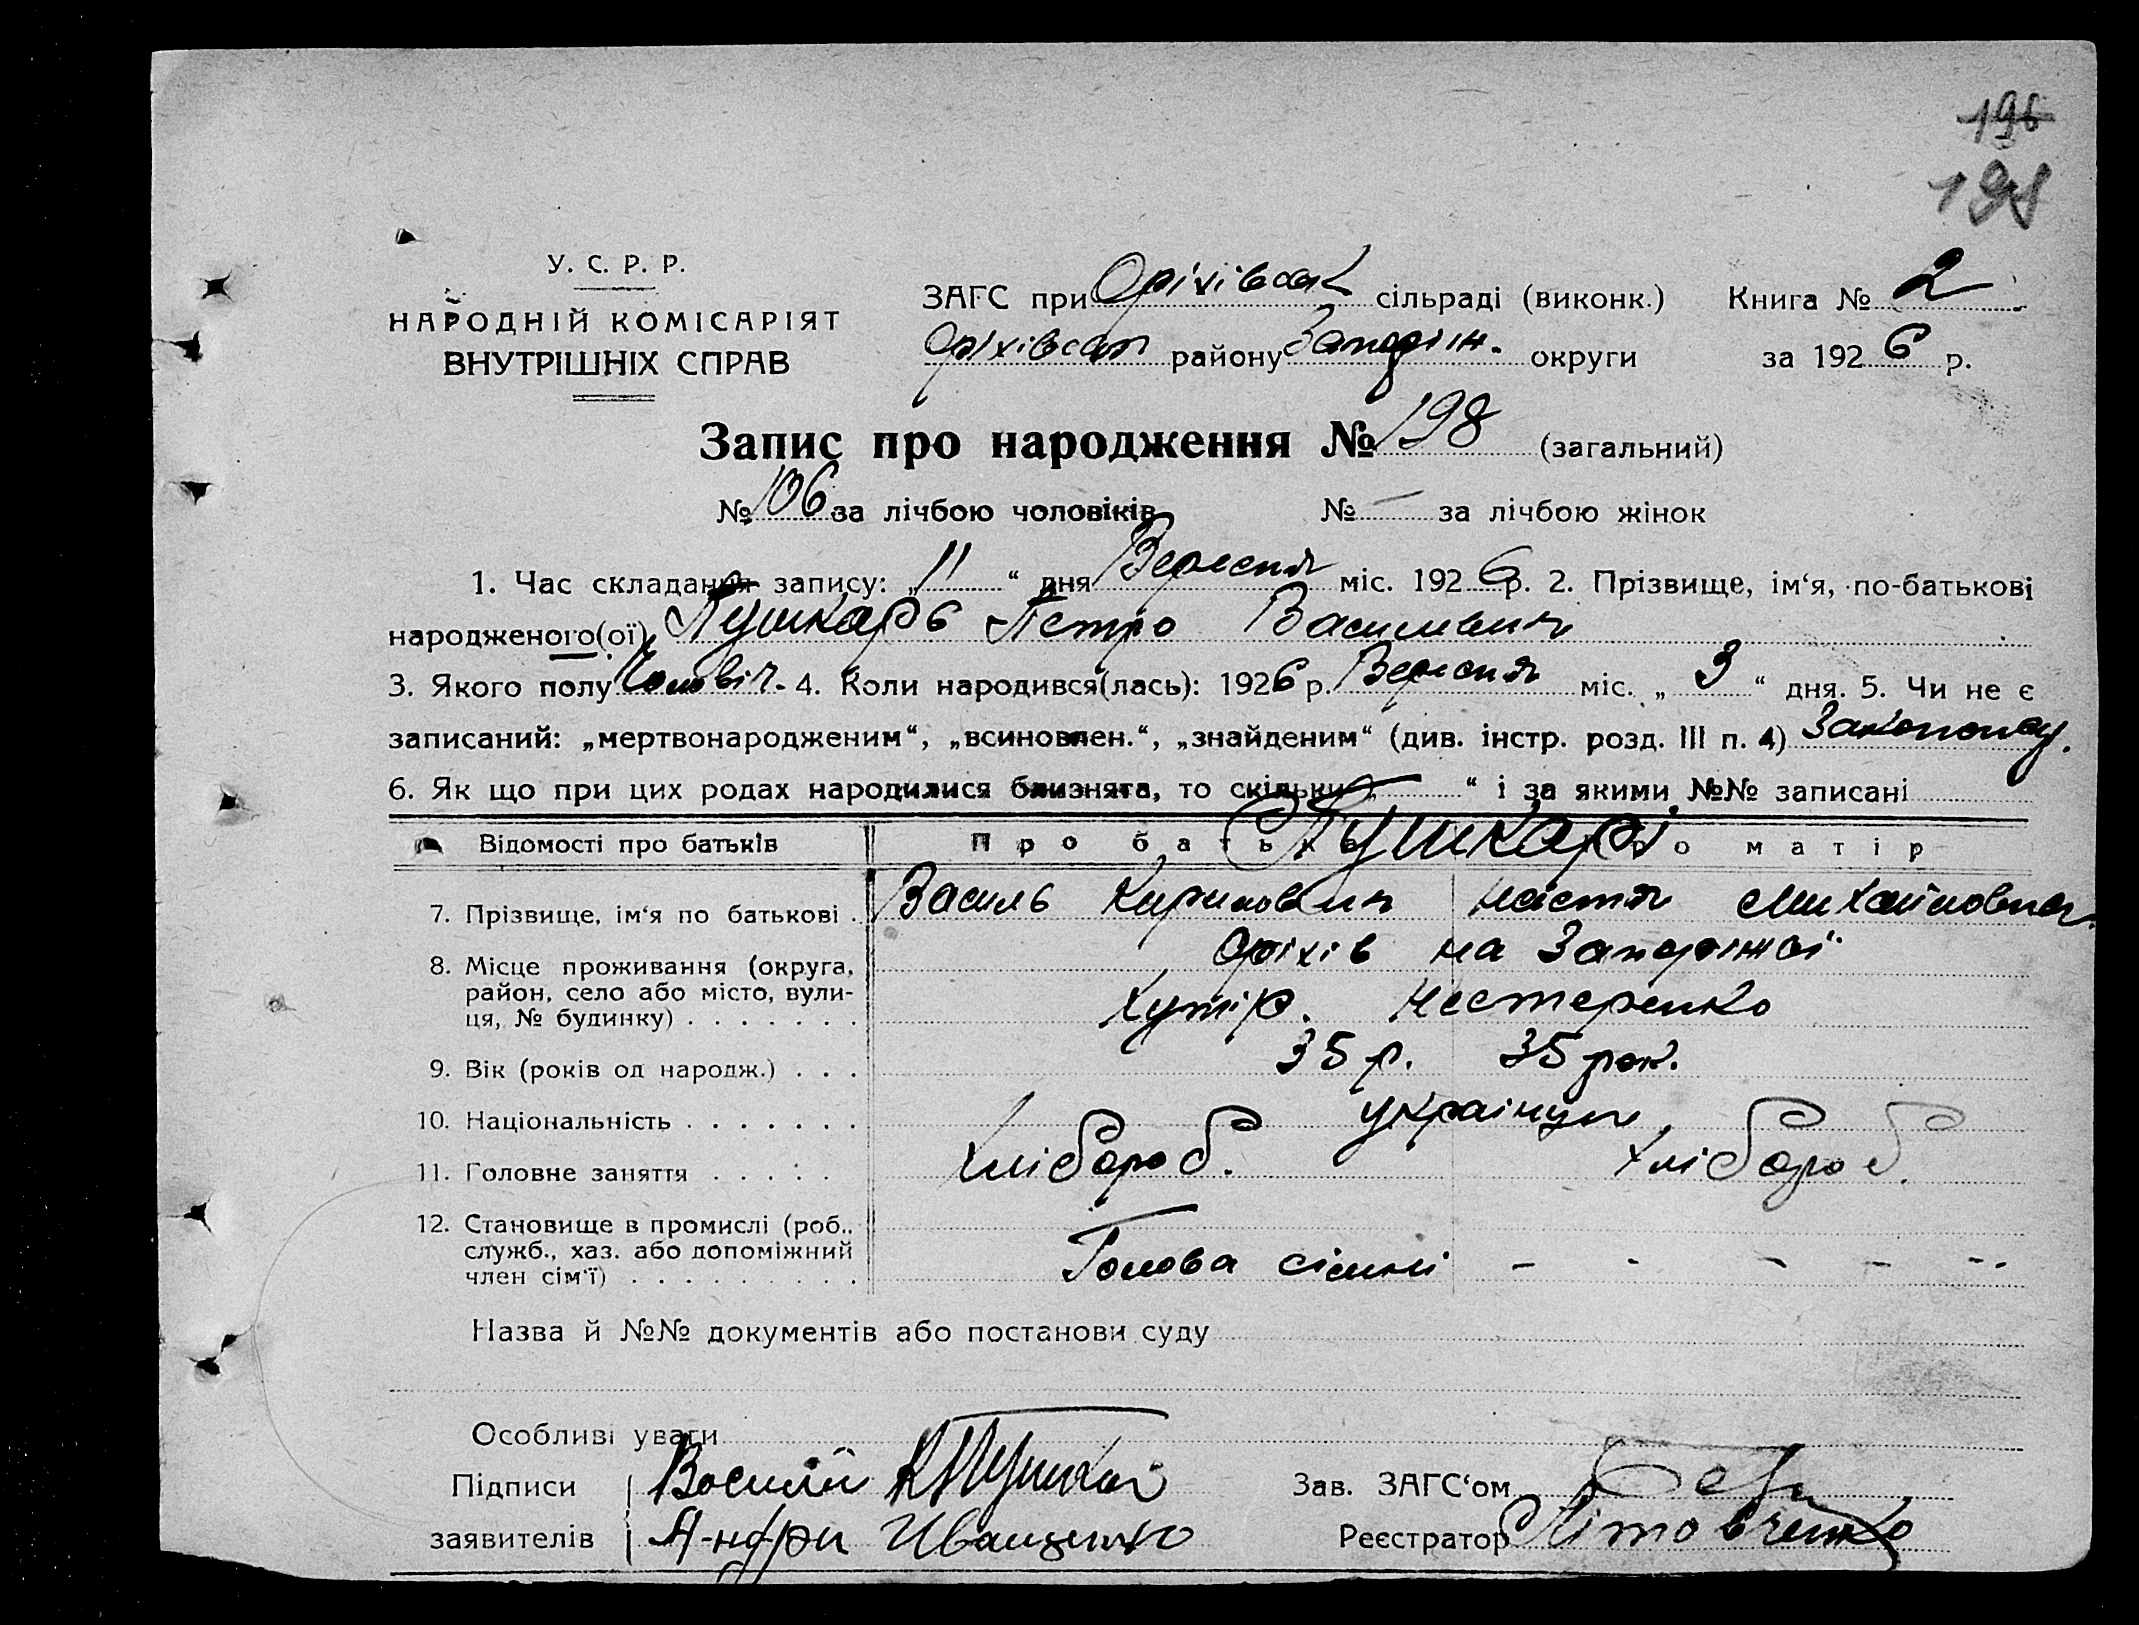 196
198
У. С. Р. Р.
НАРОДНІЙ КОМІСАРІЯТ
ВНУТРІШНІХ СПРАВ
ЗАГС при Оріхівськ сільраді (виконк.) Книга № 2
Оріхівськ району Запоріж. округи за 1926 р.
Запис про народження № 198 (загальний)
№ 106 за лічбою чоловіків № — за лічбою жінок
1. Час складання запису: „11“ дня Вересня міс. 1926 р. 2. Прізвище, ім‘я, по-батькові
народженого(ої) Пушкарь Петро Васильвич
3. Якого полу Чоловіч. 4. Коли народився(лась): 1926 р. Вересня міс. „3“ дня. 5. Чи не є
записаний: „мертвонародженим“, „всиновлен.“, „знайденим“ (див. інстр. розд. III п. 4)
6. Як що при цих родах народилися близнята, то скільки „—“ і за якими №№ записані
Відомості про батьків Про батька Про матір
Пушкарі
7. Прізвище, ім‘я по батькові . Василь Кирилович Настя Михайловна
8. Місце проживання (округа, район, село або місто, вулиця, № будинку) . . . . . . . Оріхів на Запоріжжі
Хутір. Нестеренко
9. Вік (років од народж.) . . . 35 р. 35 рок.
10. Національність . . . . . . . українці
11. Головне заняття . . . . . Хлібороб. Хлібороб.
12. Становище в промислі (роб., служб., хаз. або допоміжний член сім‘ї) . . . . . . . . . Голова сімьї - - - - - -
Назва й №№ документів або постанови суду
Особливі уваги
Підписи Василий К Пушкар Зав. ЗАГС‘ом
заявителів Андри Иващенко Реєстратор Літовченко